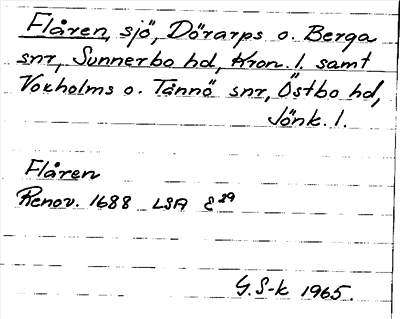 Flåren, sjö, Dörarps o. Berga
snr, Sunnerbo hd, Kron. l. samt
Voxholms o. Tånnö snr, Östbo hd,
Jönk. l.
Flåren
Renov. 1688 LSA E 29
G. S-k 1965.